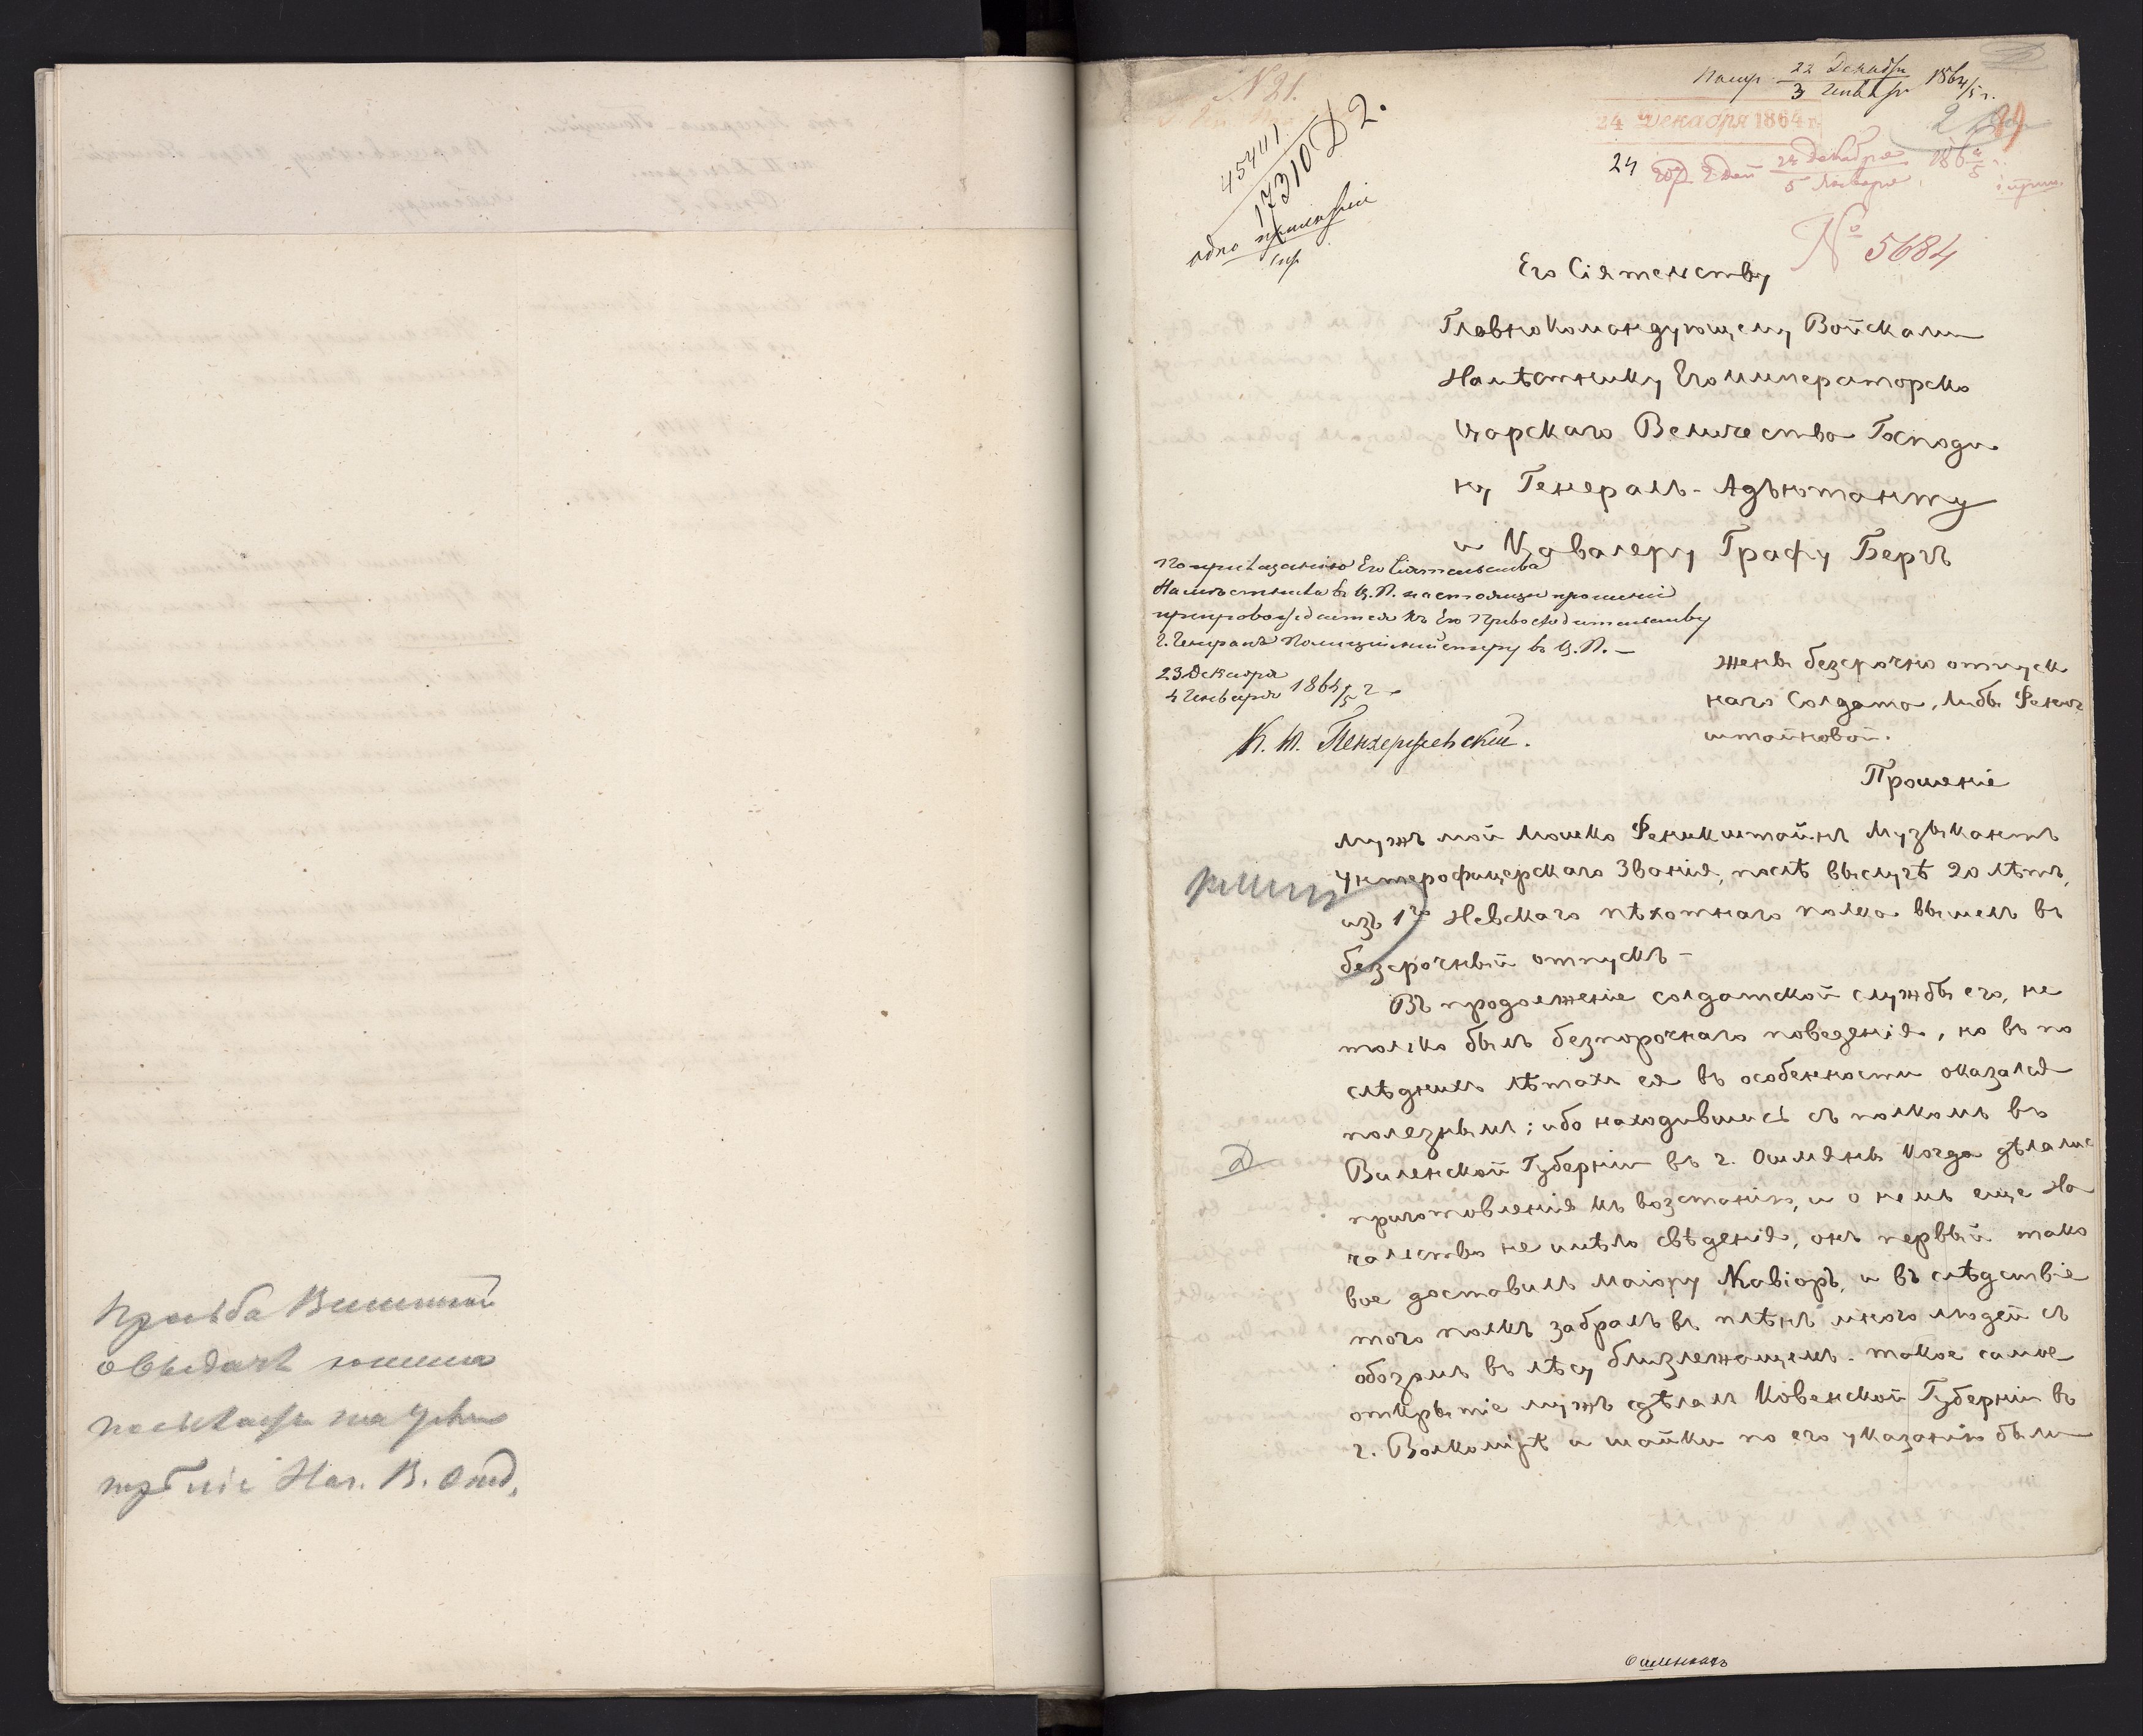 Просьба
о выдачѣ
Нач. В. Отд.
№ 21.
45411
17310 Д 2.
одно
22 Декабря
3 Января 1864/5 г.
24 Декабря 1864 г.
24
24 Декабря
5 Января 1864/5 г.
№ 5684
Его Сіятелству
Главнокомандующему Войсками
Намѣстнику Его Императорско
Царскаго Величества Господи
ну Генералъ-Адъютанту
и Кавалеру Графу Бергъ
По приказанію Его Сіятельства
Намѣстника въ Ц. П. настоящее прошеніе
препровождается къ Его Превосходительству
Г. Генералъ Полиціймейстеру въ Ц. П. –
23 Декабря
4 Января 1864/5 г.
жены безсрочно отпуск
наго Солдата, Либы Фенк
штайновой.
Прошеніе
Мужъ мой Мошко Феникштайнъ Музыкантъ
Унтерофицерскаго Званія, послѣ выслугѣ 20 лѣтъ,
изъ 1го Невскаго пѣхотнаго полка вышелъ въ
безсрочный отпускъ –
Въ продолженіе солдатской службы его, не
толко былъ безпорочнаго поведенія, но въ по
слѣднихъ лѣтахъ ея въ особенности оказался
полезнымъ; ибо находившись съ полкомъ въ
Виленской Губерніи въ г. Ошмяны когда дѣлалис
приготовленія къ возстанію, и о немъ еще На
чалство не имѣло свѣденія, онъ первый тако
вое доставилъ Маіору Кавіоръ, и въ слѣдствіе
того полкъ забралъ въ плѣнъ много людей съ
обозомъ въ лѣсу близлежащемъ. такое самое
открытіе мужъ сдѣлалъ Ковенской Губерніи въ
г. Волкоміръ и шайки по его указанію были